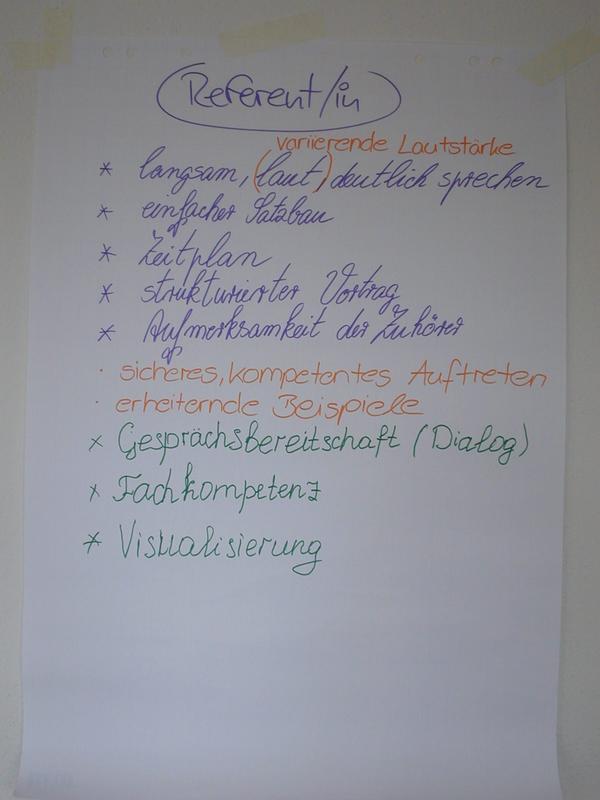 Referent/in
variierende Lautstärke
* langsam, (laut) deutlich sprechen
* einfacher Satzbau
* Zeitplan
* strukturierter Vortrag
* Aufmerksamkeit der Zuhörer
· sicheres, kompetentes Auftreten
· erheiternde Beispiele
x Gesprächsbereitschaft (Dialog)
x Fachkompetenz
* Visualisierung